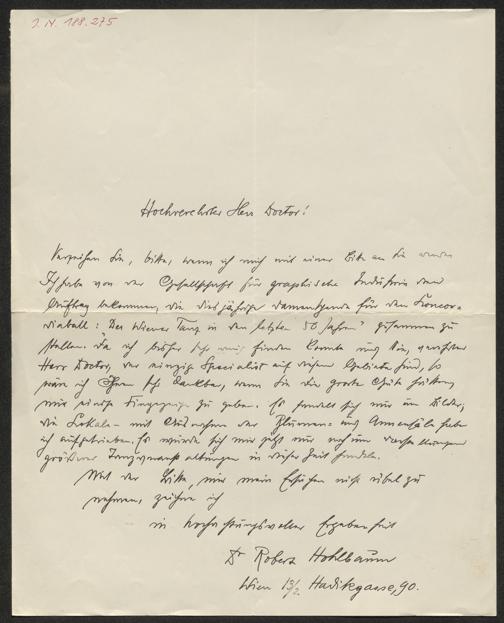 J. N. 188.275
Hochverehrter Herr Doctor!
Verzeihen Sie, bitte, wenn ich mich mit einer Bitte an Sie wende.
Ich habe von der Gesellschaft für graphische Industrie den
Auftrag bekommen, die diesjährige Damenspende für den Concor-
diaball: "Der Wiener Tanz in den letzten 50 Jahren" zusammen zu
stellen. Da ich bisher sehr wenig finden konnte und Sie, verehrter
Herr Doctor, der einzige Specialist auf diesem Gebiete sind, so
wäre ich Ihnen sehr dankbar, wenn Sie die große Güte hätten,
mir einige Fingerzeige zu geben. Es handelt sich nur um Bilder,
die Lokale mit Ausnahme der Blumen- und Annensäle habe
ich aufgetrieben. Es würde sich mir jetzt nur noch um Darstellungen
größerer Tanzveranstaltungen in dieser Zeit handeln.
Mit der Bitte, mir mein Ersuchen nicht übel zu
nehmen, zeichne ich
in hochachtungsvoller Ergebenheit
Dr Robert Hohlbaum
Wien 13/2 Hadikgasse, 90.